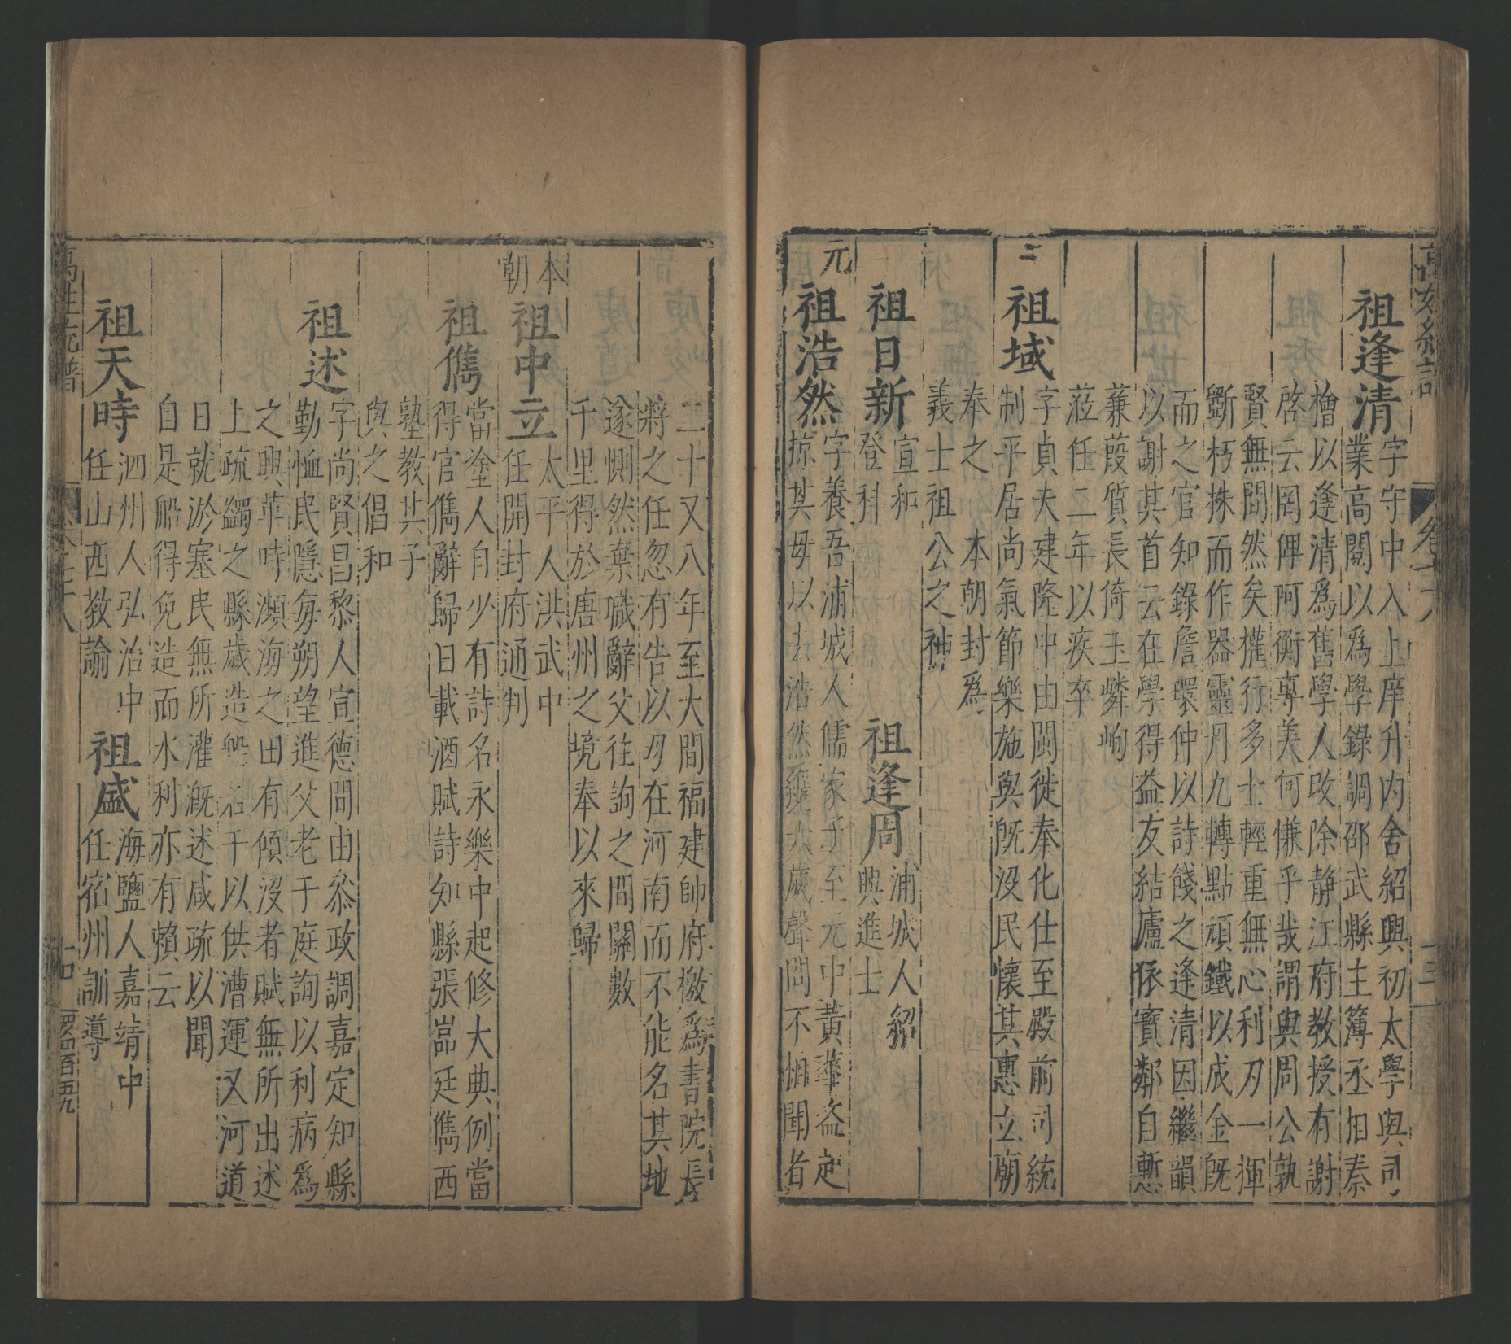 祖逢清
字守中入上庠升內舍紹興初太學與司
業高閌以爲學錄調邵武縣主簿丞相秦
檜以逢清爲舊學人改除靜江府教授有謝
啓云罔俾阿衡專美何慊乎哉謂與周公孰
賢無間然矣權行多士輕重無心利刃一揮
斷朽株而作器靈丹九轉點頑鐵以成金旣
而之官知錄詹環仲以詩餞之逢清因繼韻
以謝其首云在學得益友結廬依寳鄰自慙
蒹葭質長倚玉嶙峋
蒞任二年以疾卒
祖域
字貞夫建隆中由閩徙奉化仕至殿前司統
制平居尚氣節樂施與旣沒民懷其惠立廟
奉之 本朝封爲
義士祖公之神
祖日新
宣和
登科
祖逢周
浦城人紹
興進士
元
祖浩然
字養吾浦城人儒家子至元中黃華盜起
掠其母以去浩然甫六歲聲問不相聞者
二十又八年至大間福建帥府檄爲書院長
將之任忽有告以母在河南而不能名其地
遂惻然棄職辭父往詢之間關數
千里得於唐州之境奉以來歸
本朝
祖中立
太平人洪武中
任開封府通判
祖儁
當塗人自少有詩名永樂中起修大典例當
得官儁辭歸日載酒賦詩知縣張嵓廷儁西
塾教其子
與之倡和
祖述
字尚賢昌黎人宣德間由叅政調嘉定知縣
勤恤民隱每朔望進父老于庭詢以利病爲
之興革時瀕海之田有傾沒者賦無所出述
上疏蠲之縣歲造船若干以供漕運又河道
日就淤塞民無所灌溉述咸疏以聞
自是船得免造而水利亦有賴云
祖天時
泗州人弘治中
任山西教諭
祖盛
海鹽人嘉靖中
任宿州訓導
萬姓統譜
卷七十八
十四